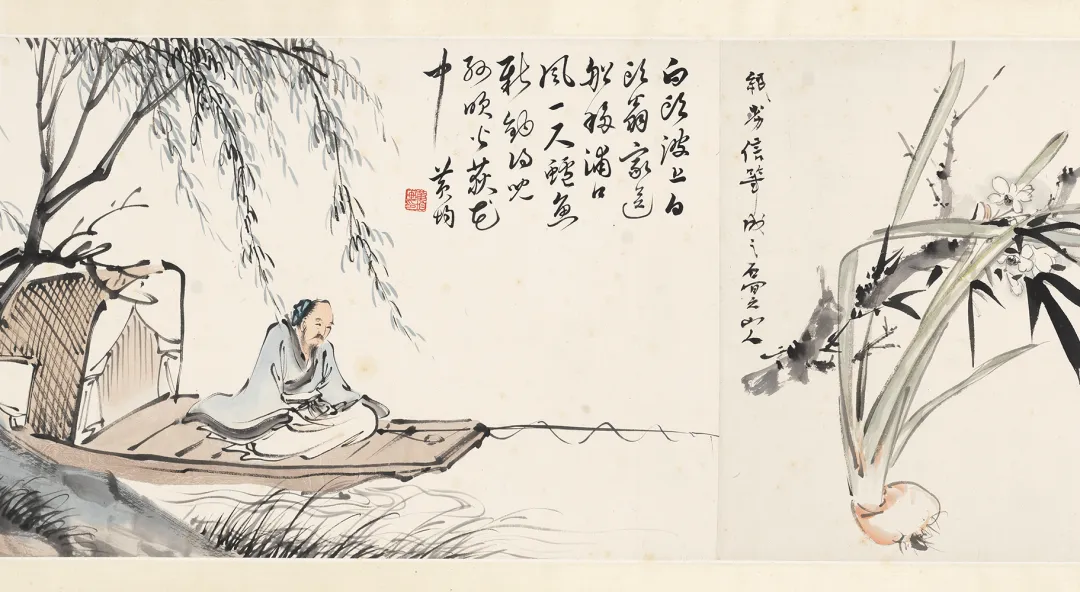 白頭波上白
頭翁家逐
船移浦口
風一尺鱸魚
新釣得兒
孫吹火荻花
中
黄均
信筆成之 山人